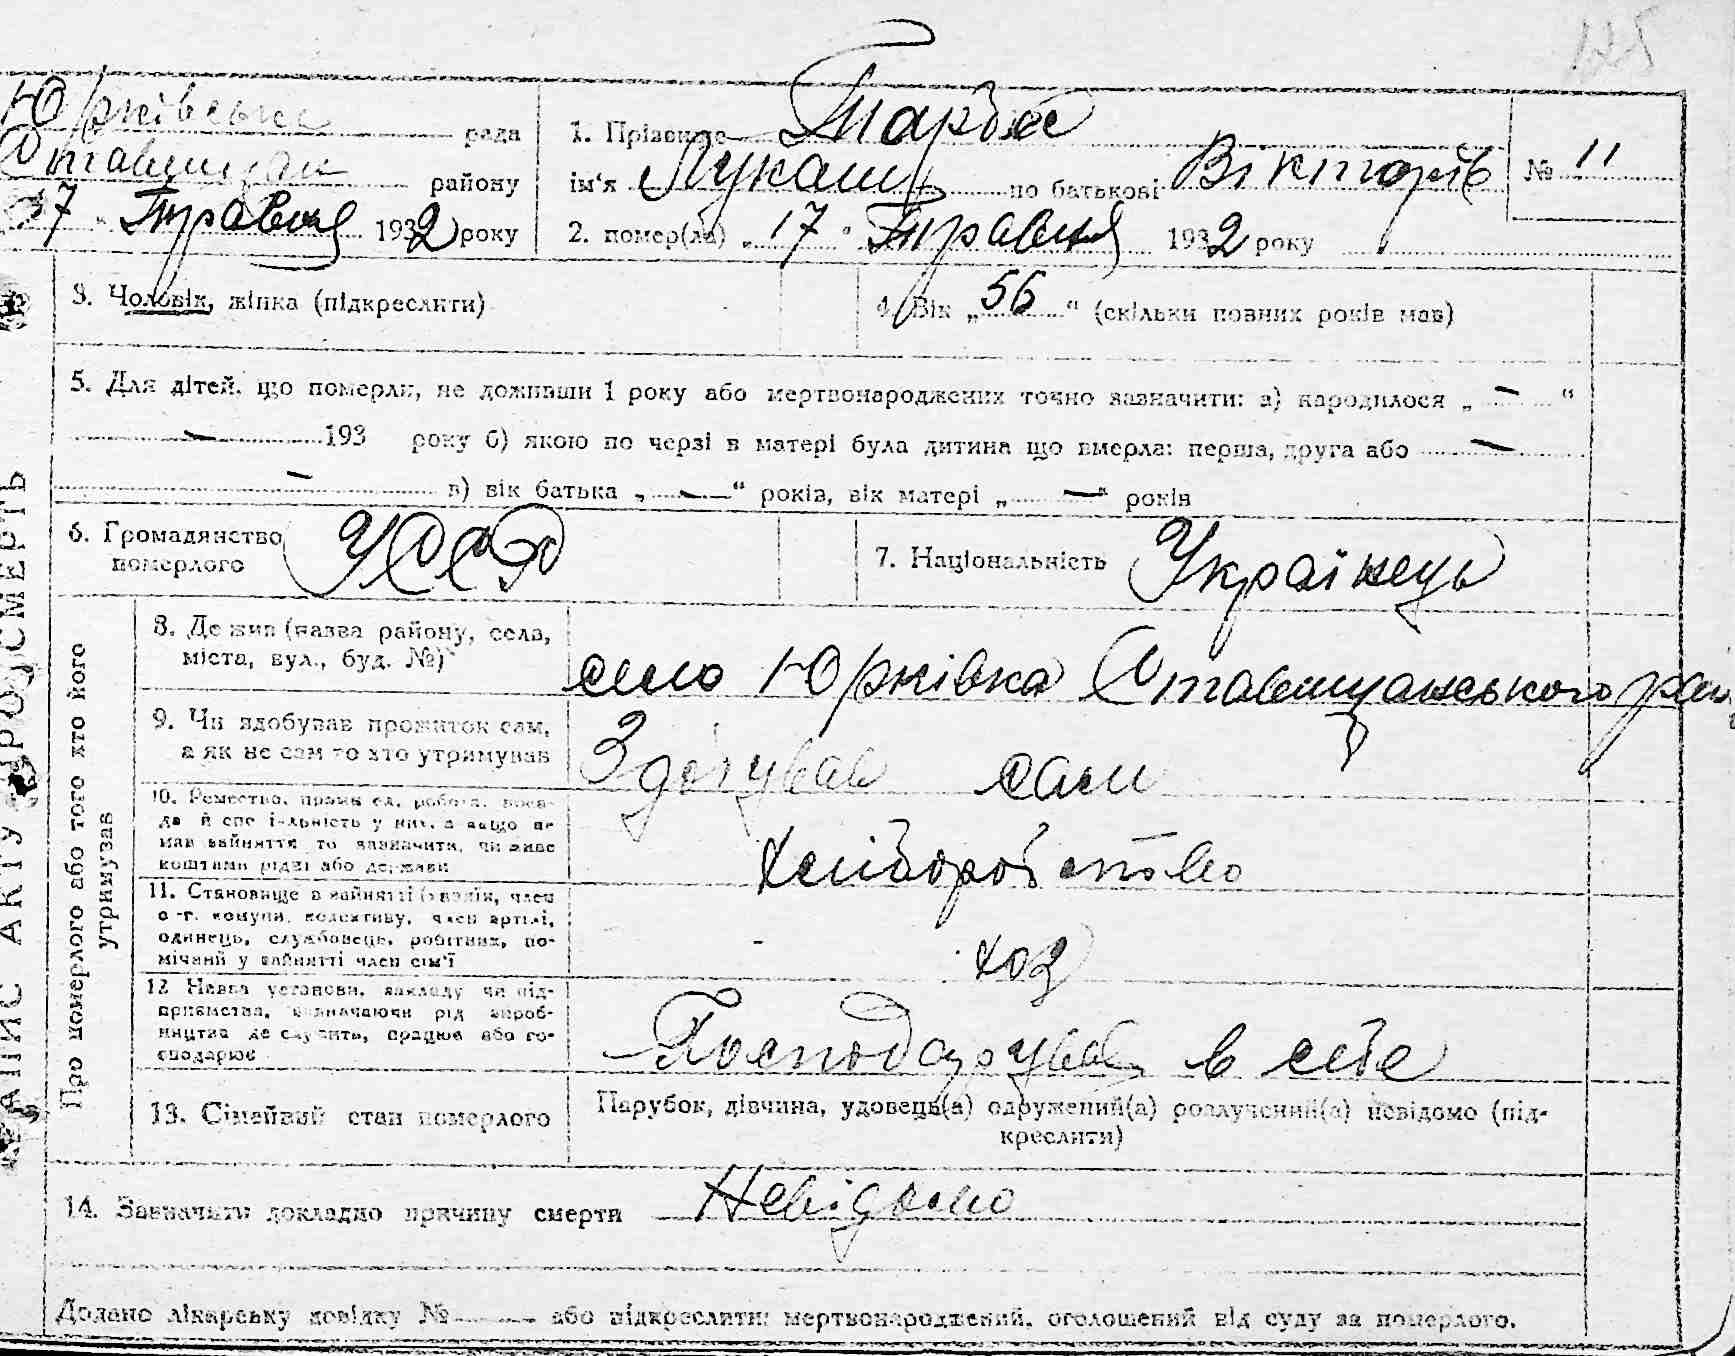 125
Юрківська рада
Ставищан району
17 „ Травня 1932 року
1. Прізвище
ім'я Лукаш по батькові Вікторів
№ 11
2. помер(ла) „ 17 " Травня 1932 року
3. Чоловік, жінка (підкреслити)
4. Вік „ 56 “ (скільки повних років мав)
5. Для дітей, що померли, не доживши 1 року або мертвонароджених точно зазначити: а) народилося „ — “
— 193 року б) якою по черзі в матері була дитина що вмерла: перша, друга або —
— в) вік батька „ — “ років, вік матері „ — “ років
6. Громадянство
померлого
УССР
7. Національність Українець
ЗАПИС АКТУ ПРО СМЕРТЬ
Про померлого або того хто його
утримував
8. Де жив (назва району, села,
міста, вул., буд. №)
село Юрківка Ставищанського рай
9. Чи здобував прожиток сам,
а як не сам то хто утримував
Здобував сам
10. Ремество, промисел, робота, поса-
да й спеціяльність у них, а якщо не
мав зайняття то зазначити, чи живе
коштами рідні або держави
хліборобство
11. Становище в зайнятті (хазяїн, член
с.-г. комуни, колективу, член артілі,
одинець, службовець, робітник, по-
мічний у зайнятті член сім'ї
- хоз
12. Назва установи, закладу чи під-
приємства, визначаючи рід вироб-
ництва де служить, працює або го-
сподарює
Господарував в себе
13. Сімейний стан померлого
Парубок, дівчина, удовець(а) одружений(а) розлучений(а) невідомо (під-
креслити)
14. Зазначити докладно причину смерти Невідомо
Додано лікарську довідку № — або підкреслити: мертвонароджений, оголошений від суду за померлого.